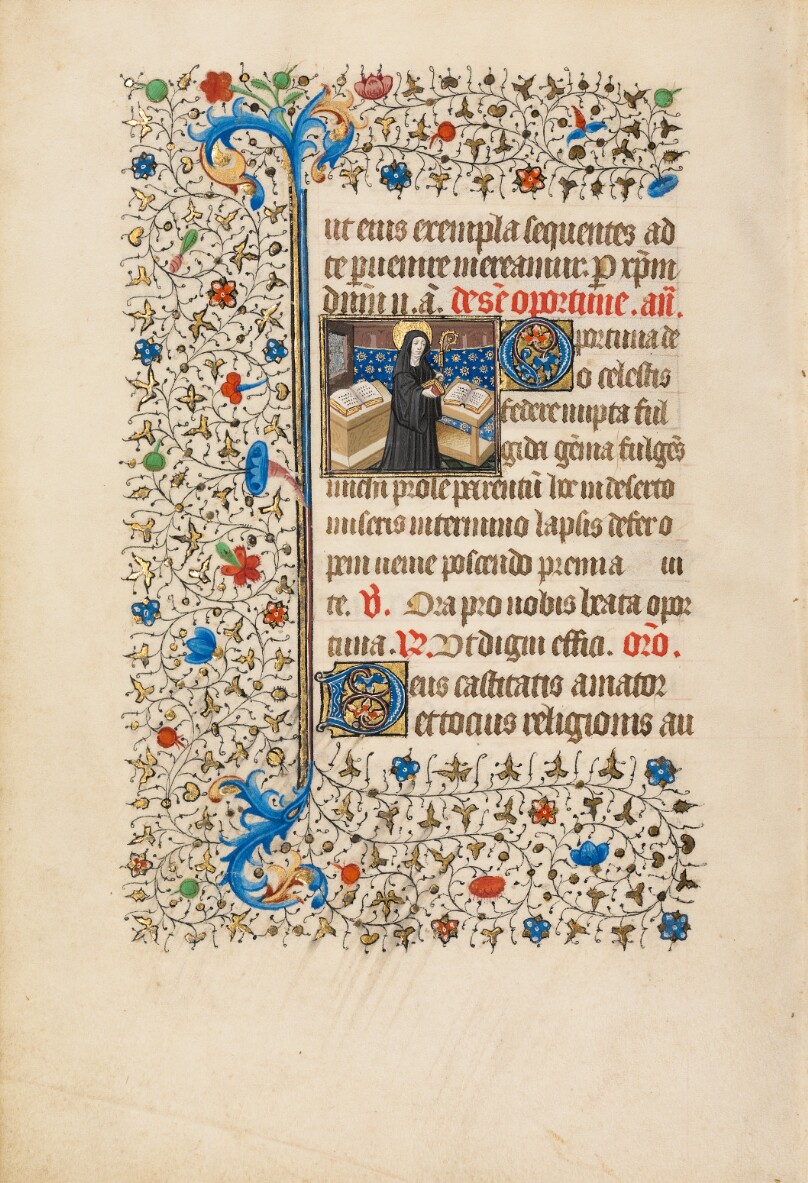 ut eius exempla sequentes ad
te puenire mereamur. P xp̄m
dn̄m n. ā. de sc̄e oportune. an̄.
Oportuna de
o celestis
federe nupta ful
gida gēma fulgēs
michi prole parentū hoc in deserto
miseris in termino lapsis defer o
pem neme poscendo premia ui
te. V̄. Ora pro nobis beata opor
tuna. R̄. Ut digni effici. orō.
Deus castitatis amator
et tocius religionis au